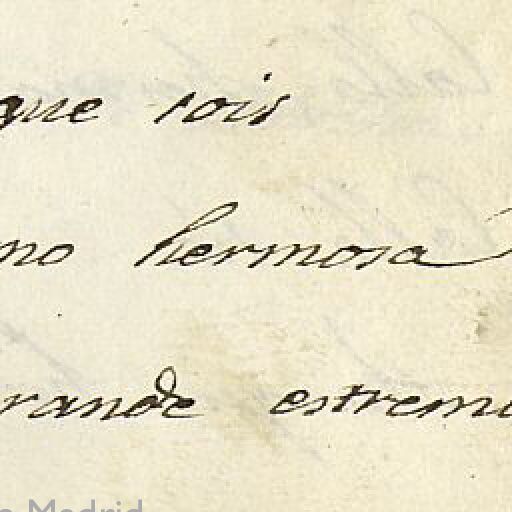 que sois
no hermosa
rande estremo
Madrid